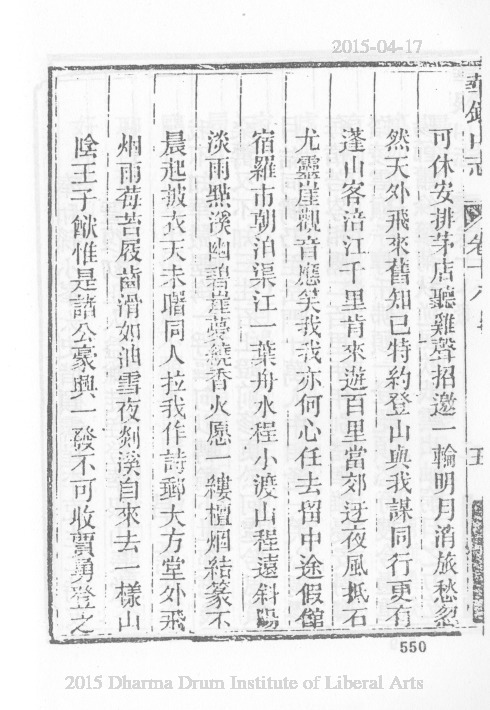 2015-04-17
華鎣山志 卷十八 五
可休安排茅店聽雞聲招邀一輪明月消旅愁忽
然天外飛來舊知己特約登山與我謀同行更有
蓬山客涪江千里肯來遊百里當郊迓夜風抵石
尤靈崖觀音應笑我我亦何心任去留中途假館
宿羅市朝泊渠江一葉舟水程小渡山程遠斜陽
淡雨點溪幽碧崖夢繞香火愿一縷檀烟結篆不
晨起披衣天未曙同人拉我作詩郵大方堂外飛
烟雨莓苔屐齒滑如油雪夜剡溪自來去一樣山
陰王子猷惟是諸公豪興一發不可收賈勇登之
550
2015 Dharma Drum Institute of Liberal Arts